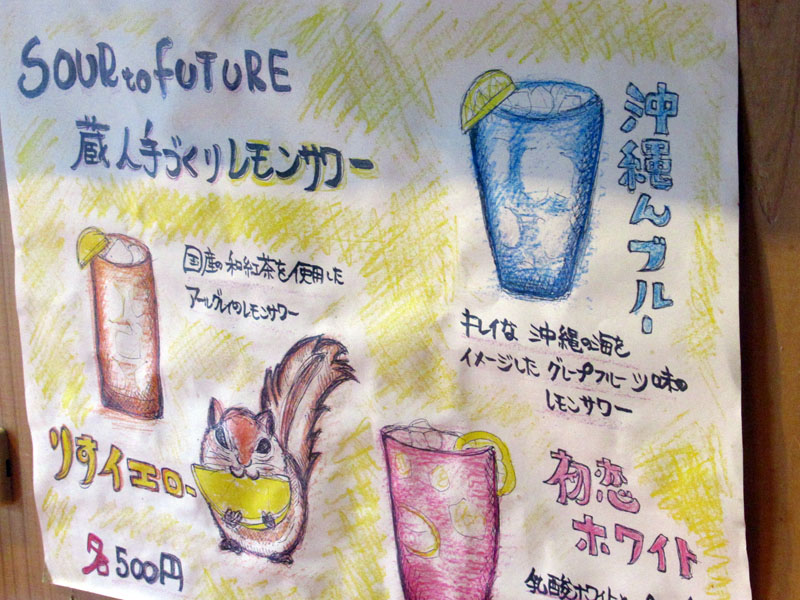 SOUR to FUTURE
蔵人手づくりレモンサワー
国産の和紅茶を使用した
アールグレイのレモンサワー
りすイエロー
各500円
沖縄んブルー
キレイな 沖縄の海を
イメージした グレープフルーツ味の
レモンサワー
初恋
ホワイト
乳酸ホワイト